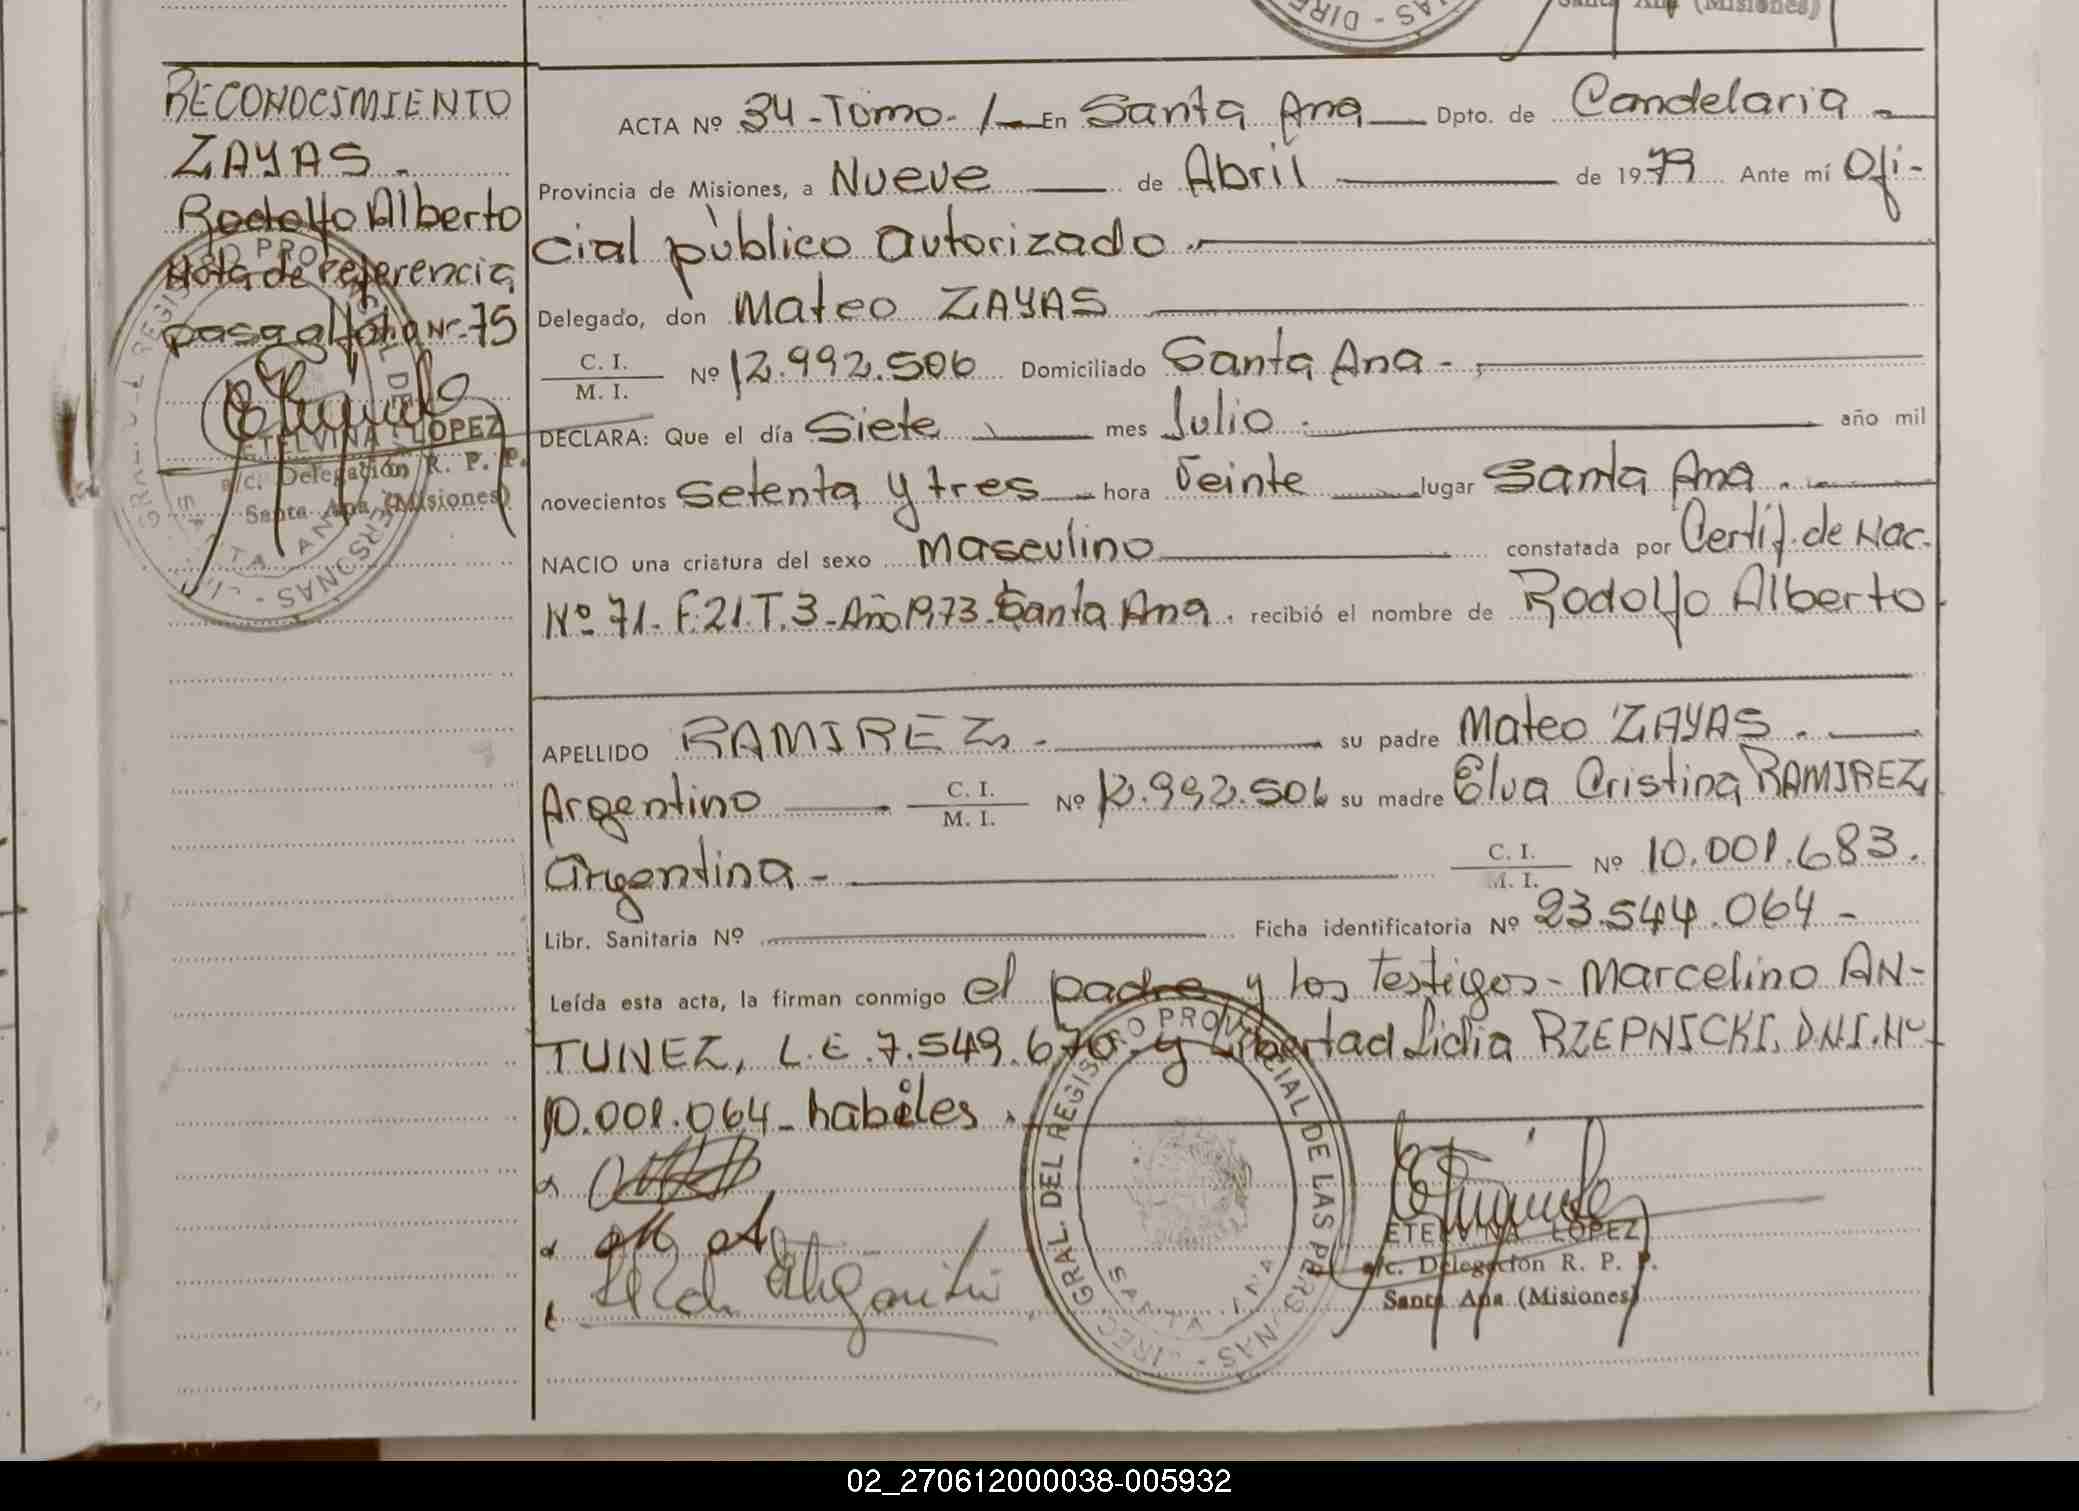 Santa Ana (Misiones)
NAS - DIRE
RECONOCIMIENTO
ZAYAS.
Rodolfo Alberto
Nota de referencia
pasa al folio Nº 75
ETELVINA LOPEZ
a/c. Delegación R. P. P.
Santa Ana (Misiones)
ACTA Nº 34 - Tomo - 1 - En Santa Ana Dpto. de Candelaria
Provincia de Misiones, a Nueve de Abril de 1979 Ante mí Ofi-
cial público autorizado.
Delegado, don Mateo ZAYAS
C. I.
M. I. Nº 12.992.506 Domiciliado Santa Ana -
DECLARA: Que el día Siete mes Julio. año mil
novecientos setenta y tres hora veinte lugar Santa Ana.
NACIO una criatura del sexo Masculino constatada por Certif. de Nac.
Nº 71 - F. 21. T. 3 - Año 1973 - Santa Ana. recibió el nombre de Rodolfo Alberto
APELLIDO RAMIREZ. su padre Mateo ZAYAS.
Argentino C. I.
M. I. Nº 12.992.506 su madre Elva Cristina RAMIREZ
argentina - C. I.
M. I. Nº 10.001.683.
Libr. Sanitaria Nº Ficha identificatoria Nº 23.544.064 -
Leída esta acta, la firman conmigo el padre y los testigos - Marcelino AN-
TUNEZ, L.E. 7.549.670 y Libertad Lidia RZEPNICKI, D.N.I. Nº
10.001.064 - habiles.
GRAL DEL REGISTRO PROVINCIAL DE LAS PERSONAS
ETELVINA LOPEZ
a/c. Delegación R. P. P.
Santa Ana (Misiones)
02_270612000038-005932